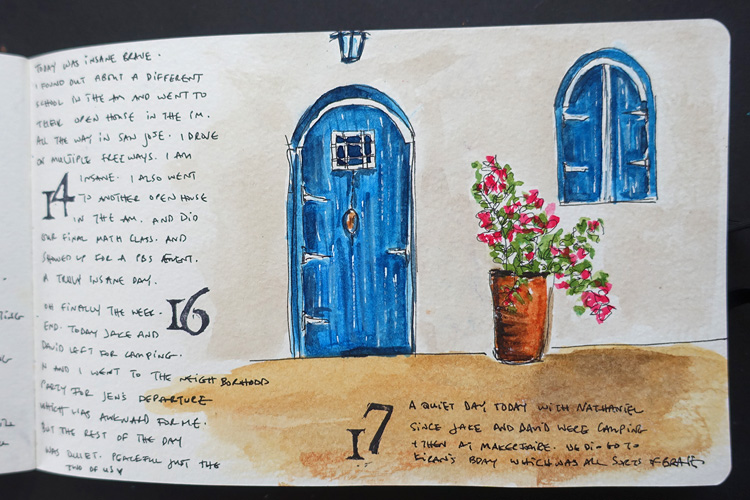 TODAY WAS INSANE BRAVE.
I FOUND OUT ABOUT A DIFFERENT
SCHOOL IN THE AM AND WENT TO
THEIR OPEN HOUSE IN THE PM.
ALL THE WAY IN SAN JOSE. I DROVE
ON MULTIPLE FREEWAYS. I AM
14
INSANE. I ALSO WENT
TO ANOTHER OPEN HOUSE
IN THE AM. AND DID
OUR FINAL MATH CLASS. AND
SHOWED UP FOR A PBS EVENT.
A TRULY INSANE DAY.
16
OH FINALLY THE WEEK.
END. TODAY JAKE AND
DAVID LEFT FOR CAMPING.
N AND I WENT TO THE NEIGHBORHOOD
PARTY FOR JEN'S DEPARTURE
WHICH WAS AWKWARD FOR ME.
BUT THE REST OF THE DAY
WAS QUIET. PEACEFUL JUST THE
TWO OF US
17
A QUIET DAY TODAY WITH NATHANIEL
SINCE JAKE AND DAVID WERE CAMPING
+ THEN AT MAKERFAIRE. WE DID GO TO
KIRAN'S BDAY WHICH WAS ALL SORTS OF BRAVE